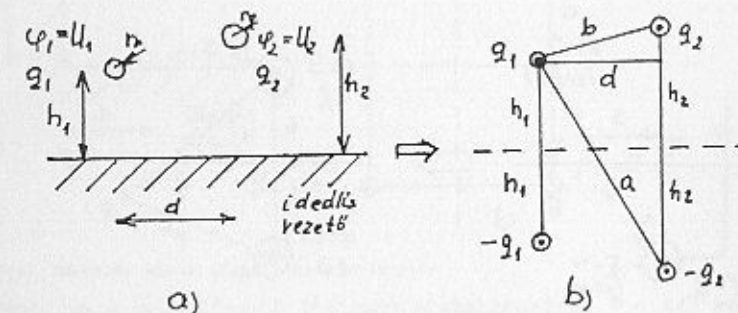 φ₁=U₁
r₁
q₁
h₁
r₂
φ₂=U₂
q₂
h₂
d
ideális
vezető
a)
q₁
b
q₂
d
h₁
h₂
h₁
a
h₂
-q₁
-q₂
b)